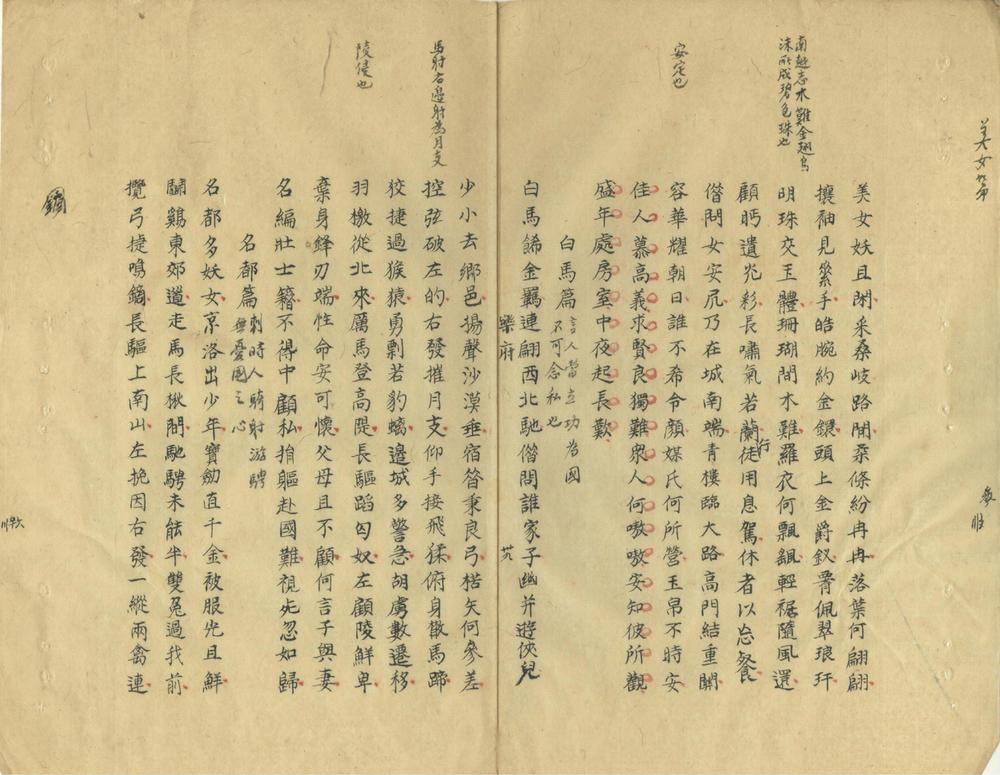 美女篇
南越志木難金翅鳥
沫所成碧色珠也
美女妖且閑采桑岐路間柔條紛冉冉落葉何翩翩
攘袖見素手皓腕約金鐶頭上金爵釵腰佩翠琅玕
明珠交玉體珊瑚間木難羅衣何飄飖輕裾隨風還
顧眄遺光彩長嘯氣若蘭行徒用息駕休者以忘餐
借問女安凥乃在城南端青樓臨大路高門結重關
安定也
容華耀朝日誰不希令顏媒氏何所營玉帛不時安
佳人慕高義求賢良獨難眾人何嗷嗷安知彼所觀
盛年處房室中夜起長歎
白馬篇 言人當立功為國
不可念私也
白馬飾金羈連翩西北馳借問誰家子幽并遊俠兒
樂府 廿八
馬射右邊射為月支
少小去鄉邑揚聲沙漠垂宿昔秉良弓楛矢何參差
控弦破左的右發摧月支仰手接飛猱俯身散馬蹄
狡捷過猴猿勇剽若豹螭邊城多警急胡虜數遷移
陵侵也
羽檄從北來厲馬登高隄長驅蹈匈奴左顧陵鮮卑
棄身鋒刃端性命安可懷父母且不顧何言子與妻
名編壯士籍不得中顧私捐軀赴國難視死忽如歸
名都篇 刺時人騎射游騁
無憂國之心
名都多妖女京洛出少年寶劒直千金被服光且鮮
鬬鷄東郊道走馬長楸間馳騁未能半雙兔過我前
攬弓捷鳴鏑長驅上南山左挽因右發一縱兩禽連
鏑